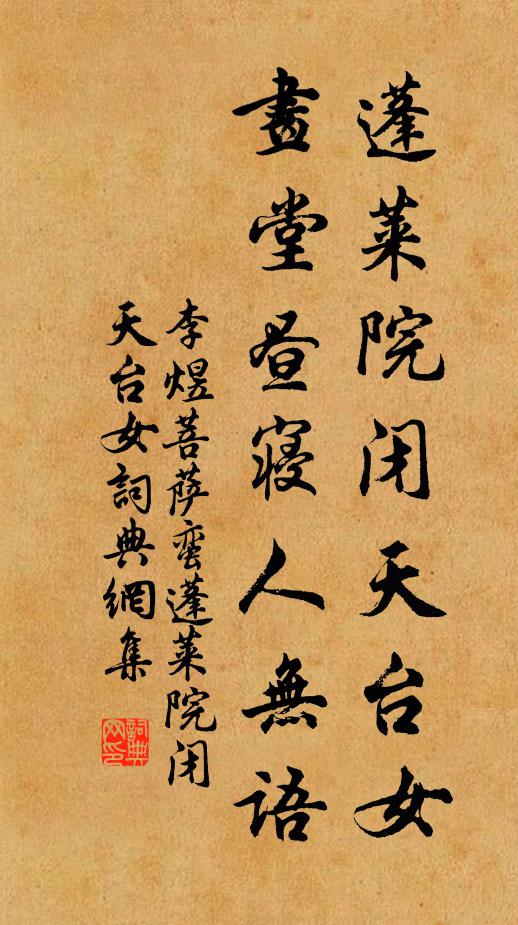 蓬萊院闭天台女
畫堂昼寝人無語
李煜菩萨蛮蓬萊院闭
天台女詞典網集
詞典
网印